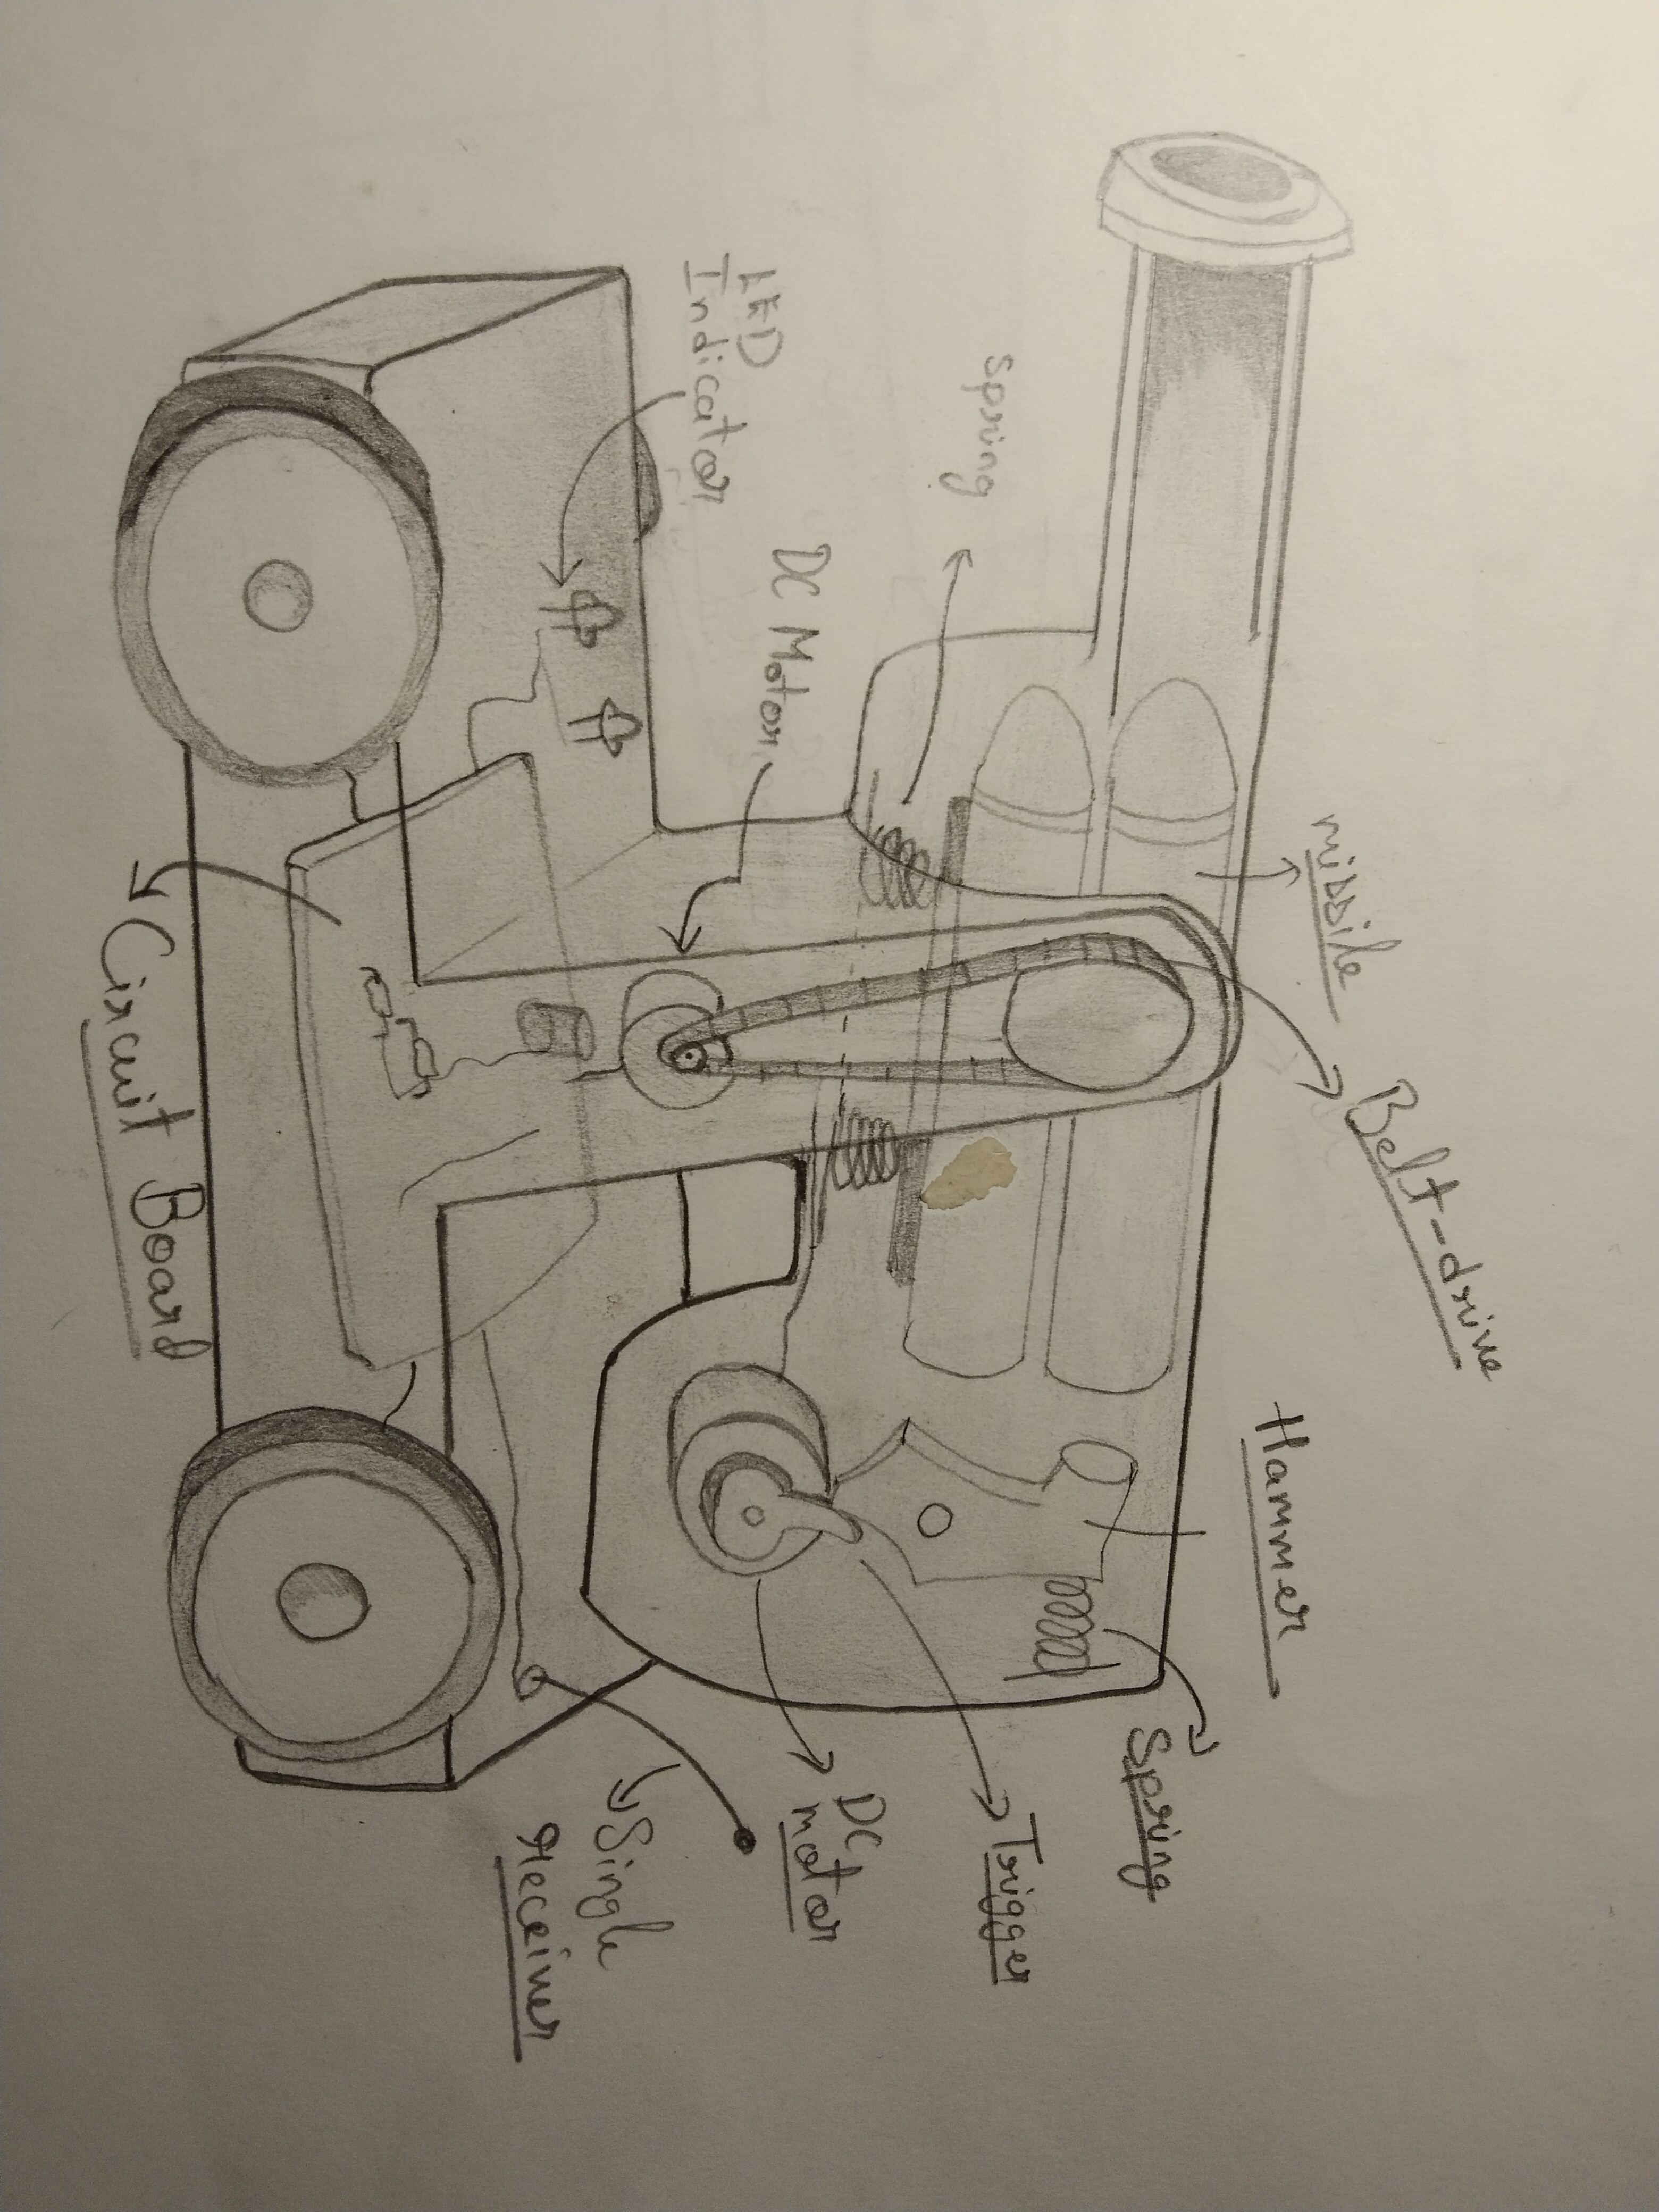 Belt-drive
missile
Hammer
Spring
Trigger
spring
DC
motor
DC Motor
LED
Indicator
Single
receiver
Circuit Board